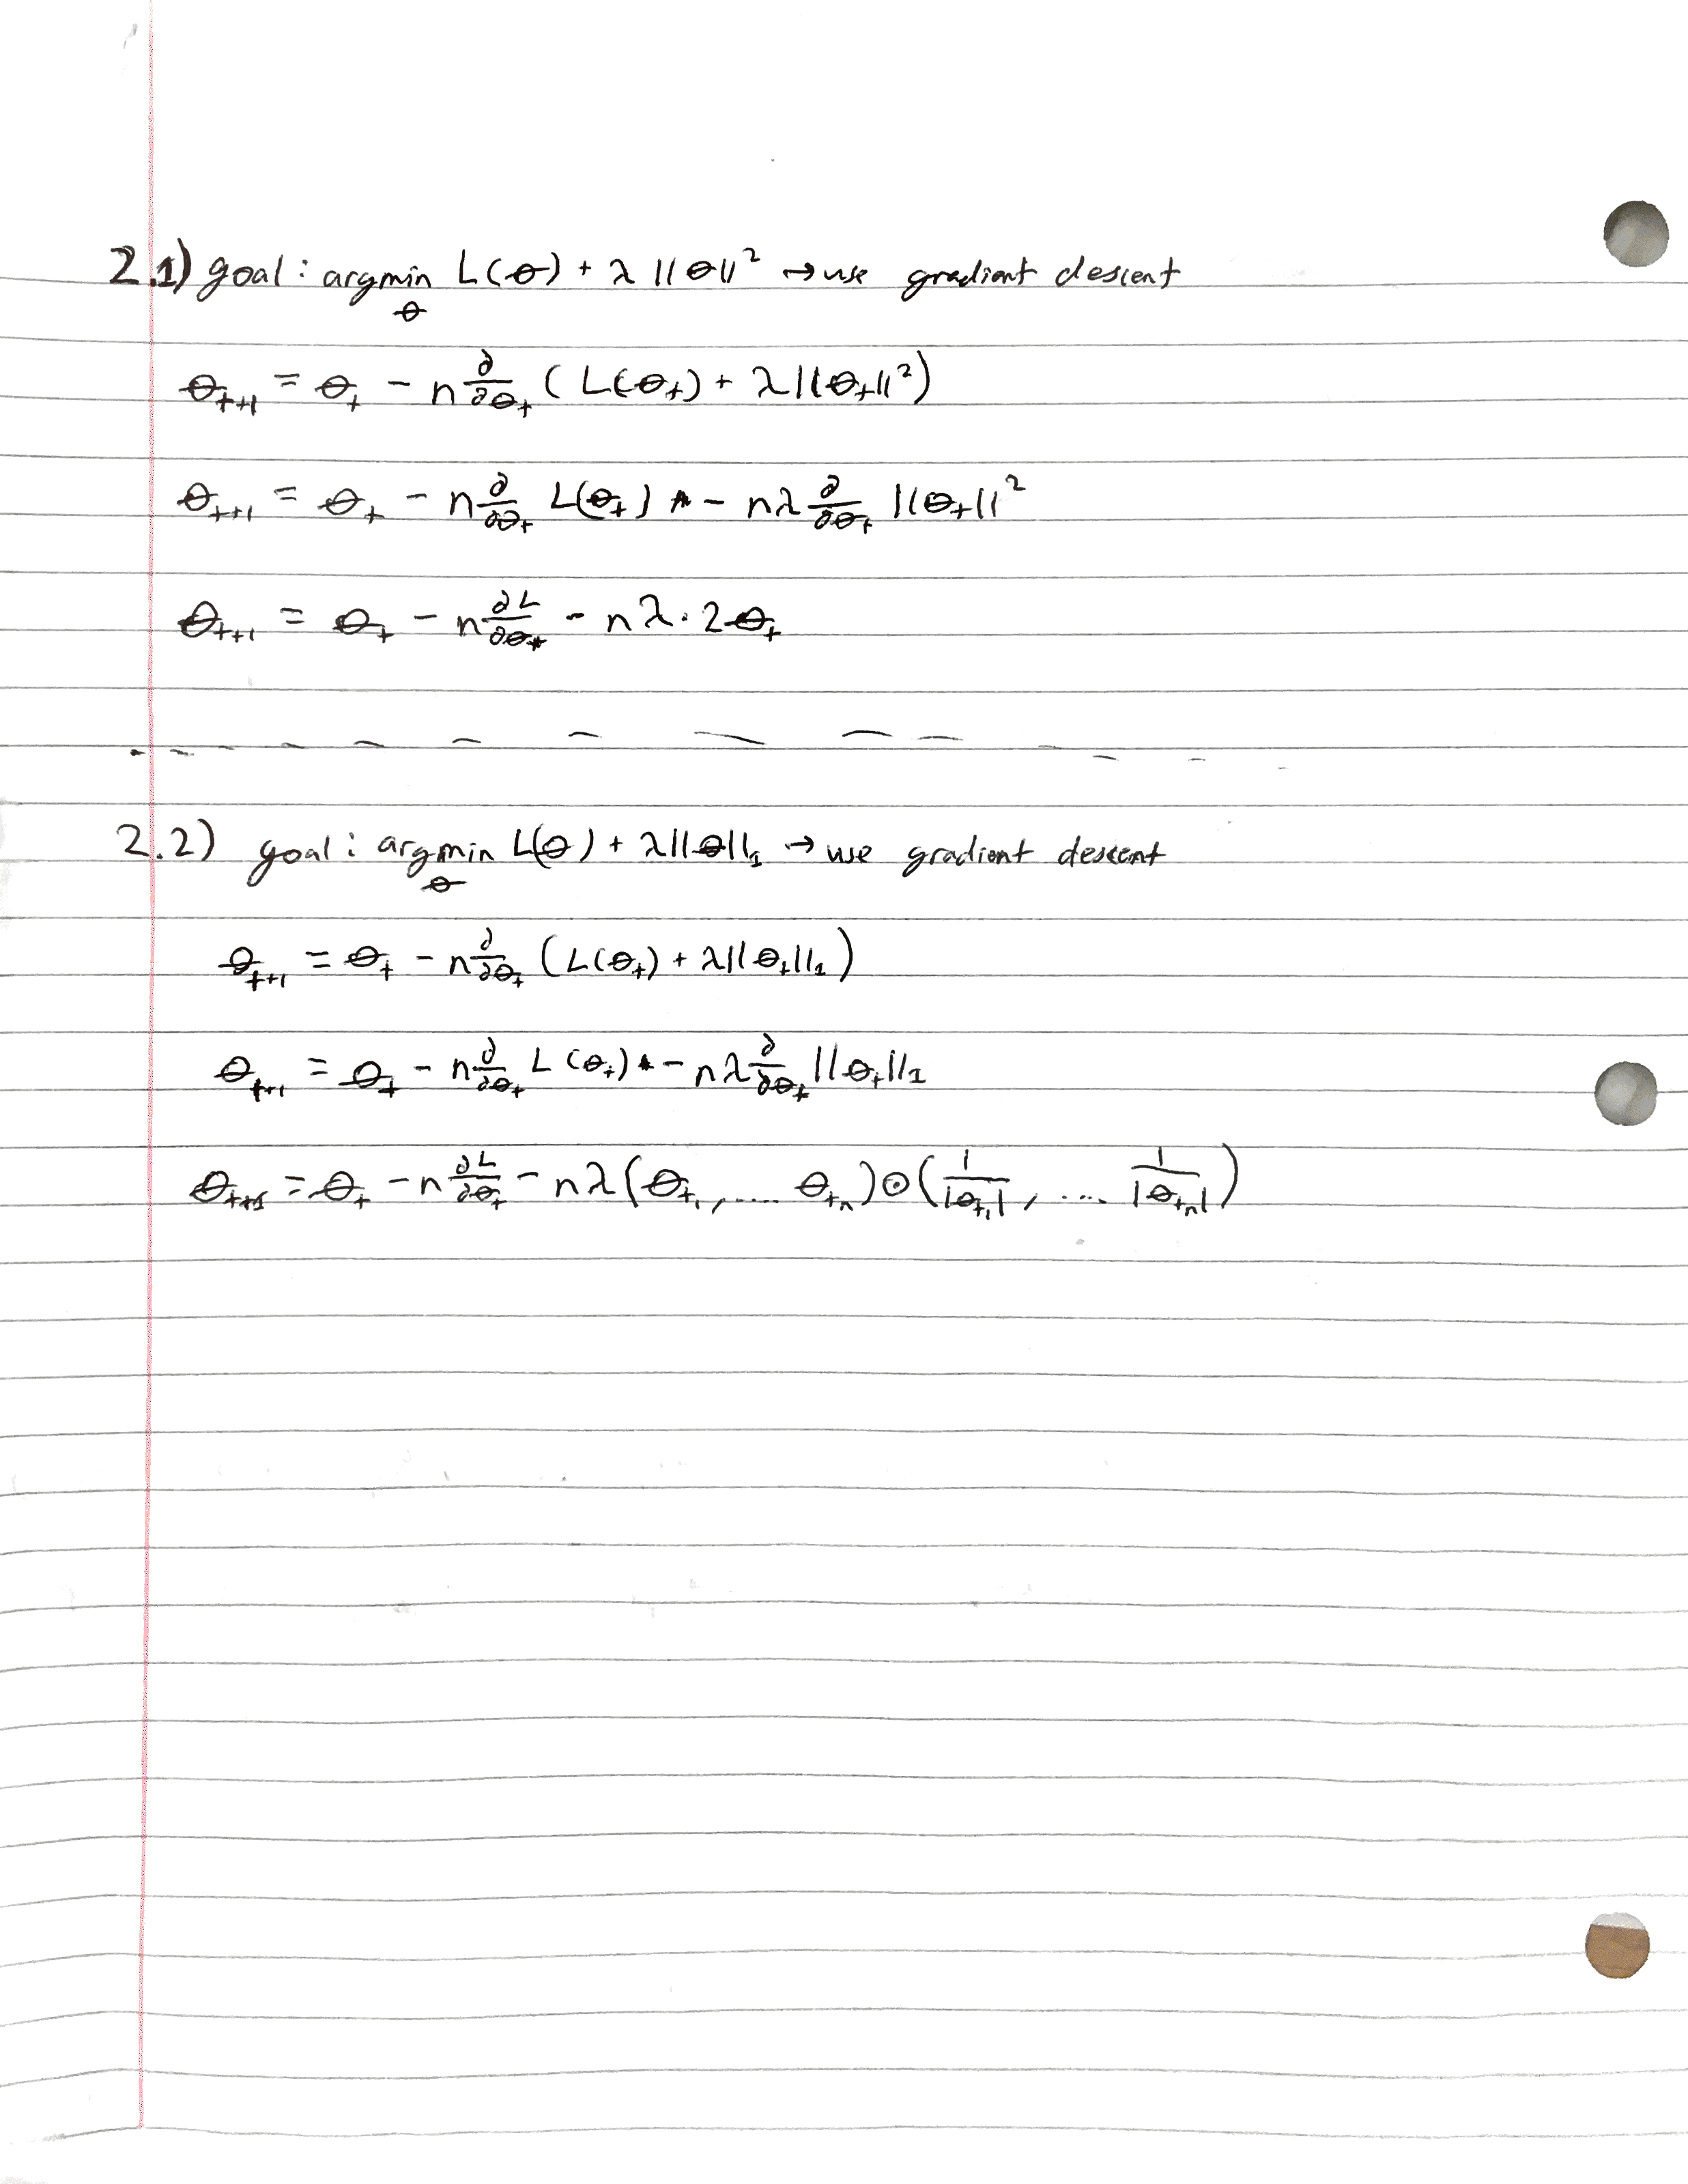 2.1) goal: argmin_θ L(θ) + λ ||θ||² → use gradient descent
θ_{t+1} = θ_t - n ∂/∂θ_t ( L(θ_t) + λ ||θ_t||² )
θ_{t+1} = θ_t - n ∂/∂θ_t L(θ_t) - nλ ∂/∂θ_t ||θ_t||²
θ_{t+1} = θ_t - n ∂L/∂θ_t - nλ · 2θ_t
2.2) goal: argmin_θ L(θ) + λ||θ||₁ → use gradient descent
θ_{t+1} = θ_t - n ∂/∂θ_t ( L(θ_t) + λ||θ_t||₁ )
θ_{t+1} = θ_t - n ∂/∂θ_t L(θ_t) - nλ ∂/∂θ_t ||θ_t||₁
θ_{t+1} = θ_t - n ∂L/∂θ_t - nλ (θ_{t_1}, .... θ_{t_n}) ⊙ ( 1/|θ_{t_1}|, .... 1/|θ_{t_n}| )